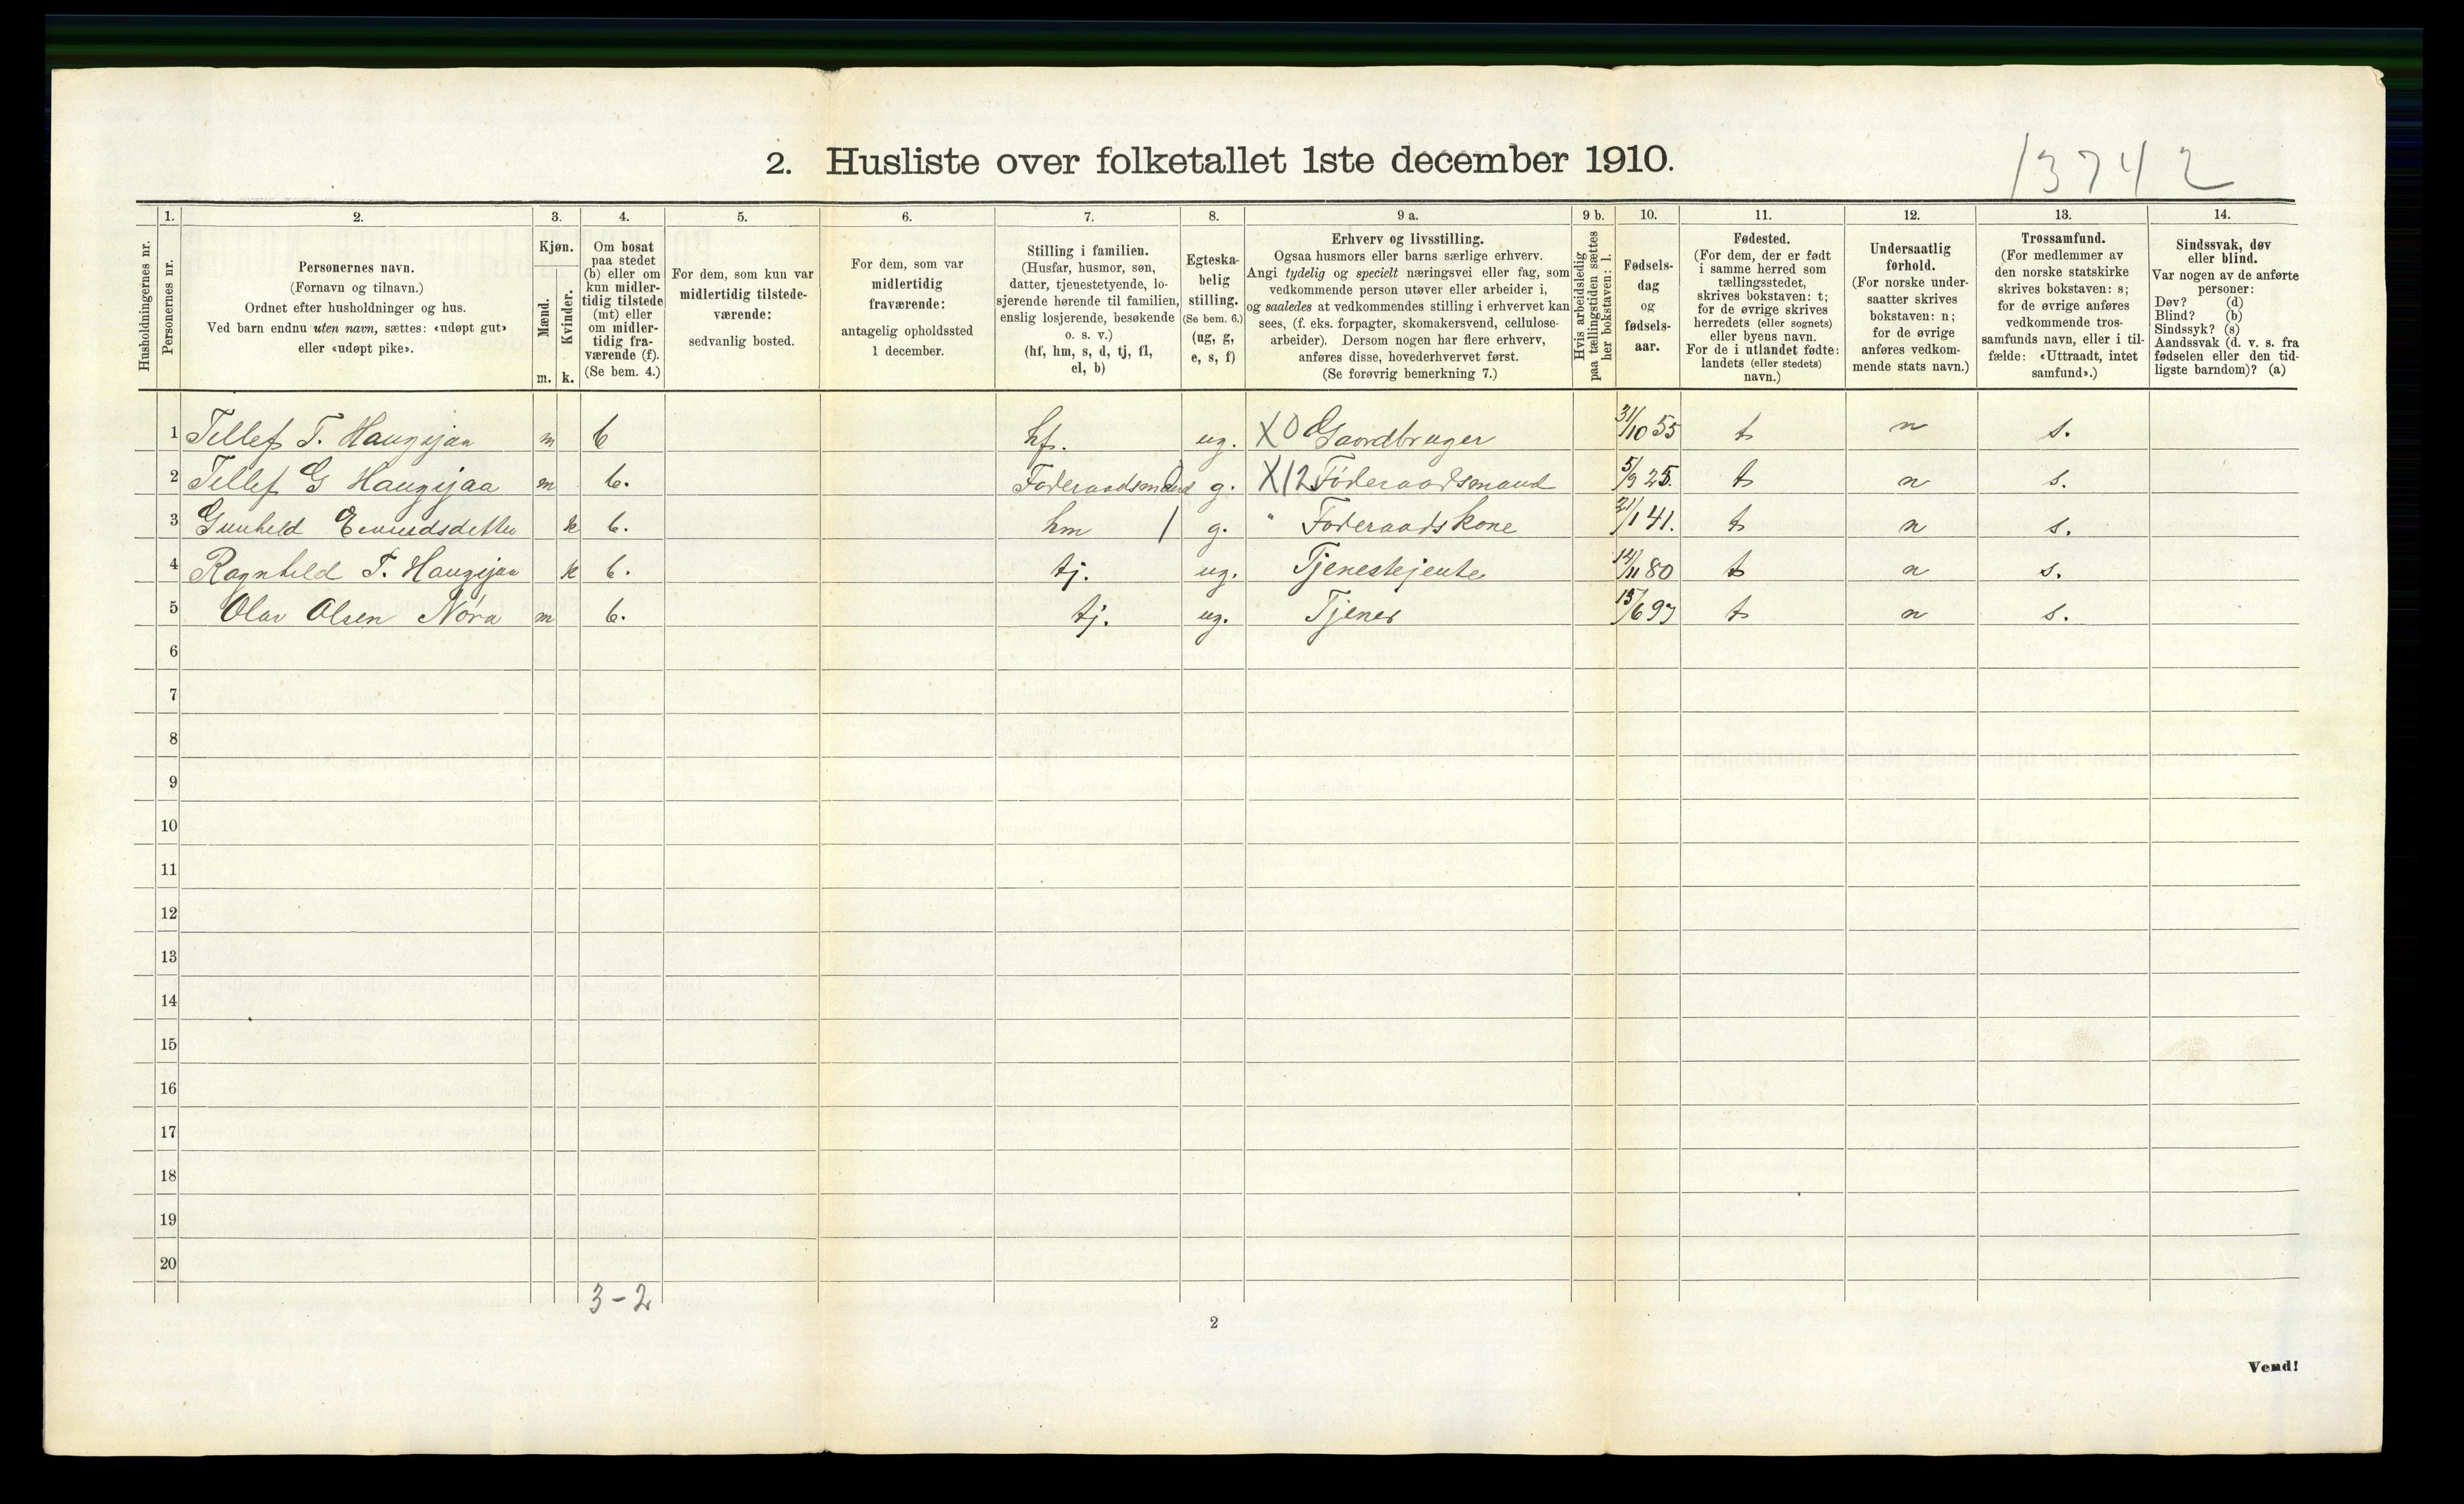 2. Husliste over folketallet 1ste december 1910.
13742
1. 2. 3. 4. 5. 6. 7. 8. 9 a. 9 b. 10. 11. 12. 13. 14.
Husholdningernes nr.
Personernes nr.
Personernes navn.
(Fornavn og tilnavn.)
Ordnet efter husholdninger og hus.
Ved barn endnu uten navn, sættes: «udøpt gut»
eller «udøpt pike».
Kjøn.
Mænd.
Kvinder.
m. k.
Om bosat
paa stedet
(b) eller om
kun midler-
tidig tilstede
(mt) eller
om midler-
tidig fra-
værende (f).
(Se bem. 4.)
For dem, som kun var
midlertidig tilstede-
værende:
sedvanlig bosted.
For dem, som var
midlertidig
fraværende:
antagelig opholdssted
1 december.
Stilling i familien.
(Husfar, husmor, søn,
datter, tjenestetyende, lo-
sjerende hørende til familien,
enslig losjerende, besøkende
o. s. v.)
(hf, hm, s, d, tj, fl,
el, b)
Egteska-
belig
stilling.
(Se bem. 6.)
(ug, g,
e, s, f)
Erhverv og livsstilling.
Ogsaa husmors eller barns særlige erhverv.
Angi tydelig og specielt næringsvei eller fag, som
vedkommende person utøver eller arbeider i,
og saaledes at vedkommendes stilling i erhvervet kan
sees, (f. eks. forpagter, skomakersvend, cellulose-
arbeider). Dersom nogen har flere erhverv,
anføres disse, hovederhvervet først.
(Se forøvrig bemerkning 7.)
Hvis arbeidsledig
paa tællingstiden sættes
her bokstaven: l.
Fødsels-
dag
og
fødsels-
aar.
Fødested.
(For dem, der er født
i samme herred som
tællingsstedet,
skrives bokstaven: t;
for de øvrige skrives
herredets (eller sognets)
eller byens navn.
For de i utlandet fødte:
landets (eller stedets)
navn.)
Undersaatlig
forhold.
(For norske under-
saatter skrives
bokstaven: n;
for de øvrige
anføres vedkom-
mende stats navn.)
Trossamfund.
(For medlemmer av
den norske statskirke
skrives bokstaven: s;
for de øvrige anføres
vedkommende tros-
samfunds navn, eller i til-
fælde: «Uttraadt, intet
samfund».)
Sindssvak, døv
eller blind.
Var nogen av de anførte
personer:
Døv? (d)
Blind? (b)
Sindssyk? (s)
Aandssvak (d. v. s. fra
fødselen eller den tid-
ligste barndom)? (a)
1 Tellef T. Haugejaa m b hf. ug. X0 Gaardbruger 31/10 55 t n s.
2 Tellef G Haugejaa m b. Føderaadsmand g. X12 Føderaadsmand 5/9 25. t n s.
3 Gunhild k b. hm 1 g. " Føderaadskone 21/1 41. t n s.
4 Ragnhild T. Haugejaa k b. tj. ug. Tjenestejente 14/11 80 t n s.
5 Olav Olsen Nora m b. tj. ug. Tjener 15/6 97 t n s.
6
7
8
9
10
11
12
13
14
15
16
17
18
19
20
3-2
2
Vend!